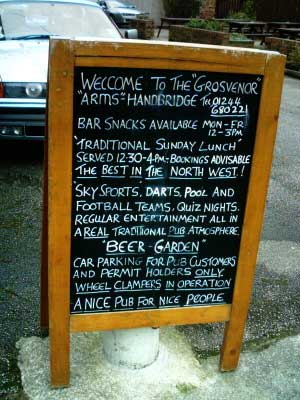 WELCOME TO THE "GROSVENOR"
"ARMS" HANDBRIDGE TEL 01244
680221
BAR SNACKS AVAILABLE MON-FRI
12-3PM
"TRADITIONAL SUNDAY LUNCH"
SERVED 12·30-4PM-BOOKINGS ADVISABLE
THE BEST IN THE NORTH WEST!
SKY SPORTS, DARTS, POOL AND
FOOTBALL TEAMS, QUIZ NIGHTS.
REGULAR ENTERTAINMENT ALL IN
A REAL TRADITIONAL PUB ATMOSPHERE
"BEER-GARDEN"
CAR PARKING FOR PUB CUSTOMERS
AND PERMIT HOLDERS ONLY.
WHEEL CLAMPERS IN OPERATION
A NICE PUB FOR NICE PEOPLE